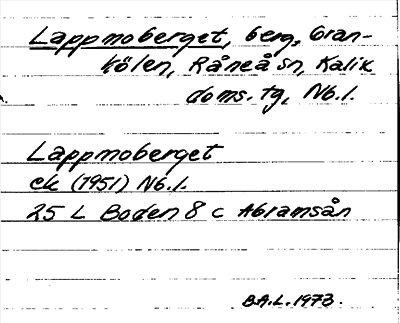 Lappmoberget, berg, Gran-
kölen, Råneå sn, Kalix
doms. tg, Nb. l.
Lappmoberget
ek (1951) Nb. l.
25 L Boden 8 c Abramsån
B.A.L. 1973.